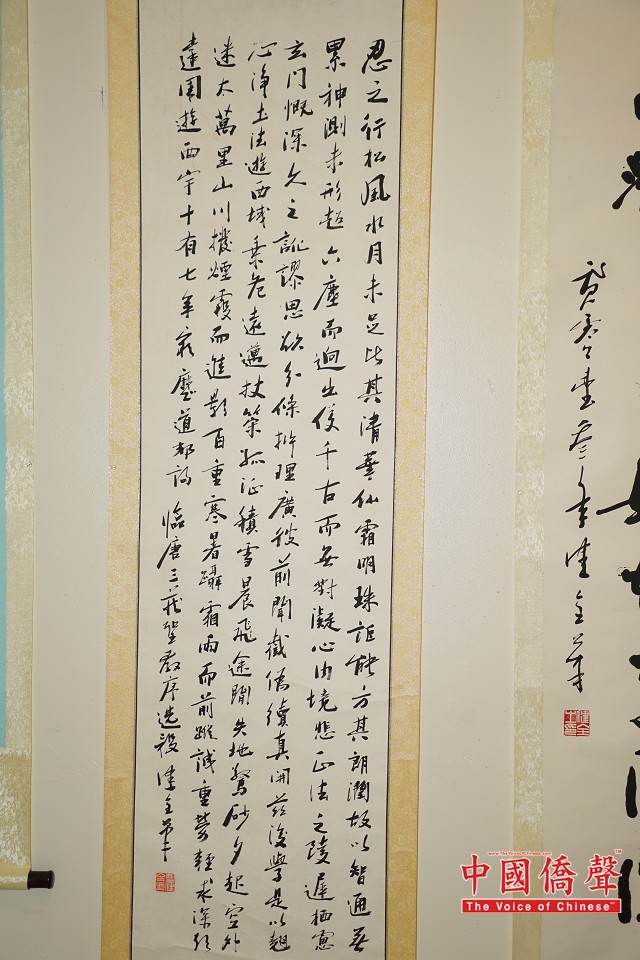 忍之行松風水月未足比其清華仙露明珠詎能方其朗潤故以智通無
累神測未形超六塵而迥出隻千古而無對凝心內境悲正法之陵遲栖慮
玄門慨深文之訛謬思欲分條析理廣彼前聞截偽續真開茲後學是以翹
心淨土法遊西域乘危遠邁杖策孤征積雪晨飛途閒失地驚砂夕起空外
迷天萬里山川撥煙霞而進影百重寒暑躡霜雨而前蹤誠重勞輕求深欲
達周遊西宇十有七年窮歷道邦詢 臨唐三藏聖教序選段
中國僑聲™
The Voice of Chinese™